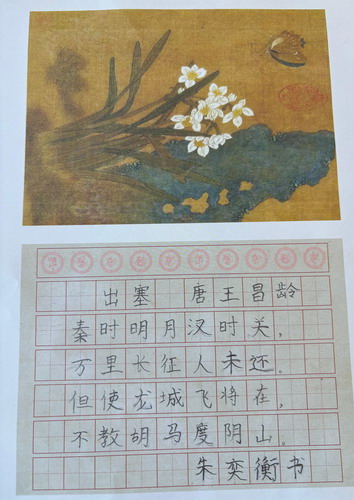 出塞 唐 王昌龄
秦时明月汉时关，
万里长征人未还。
但使龙城飞将在，
不教胡马度阴山。
朱奕衡书